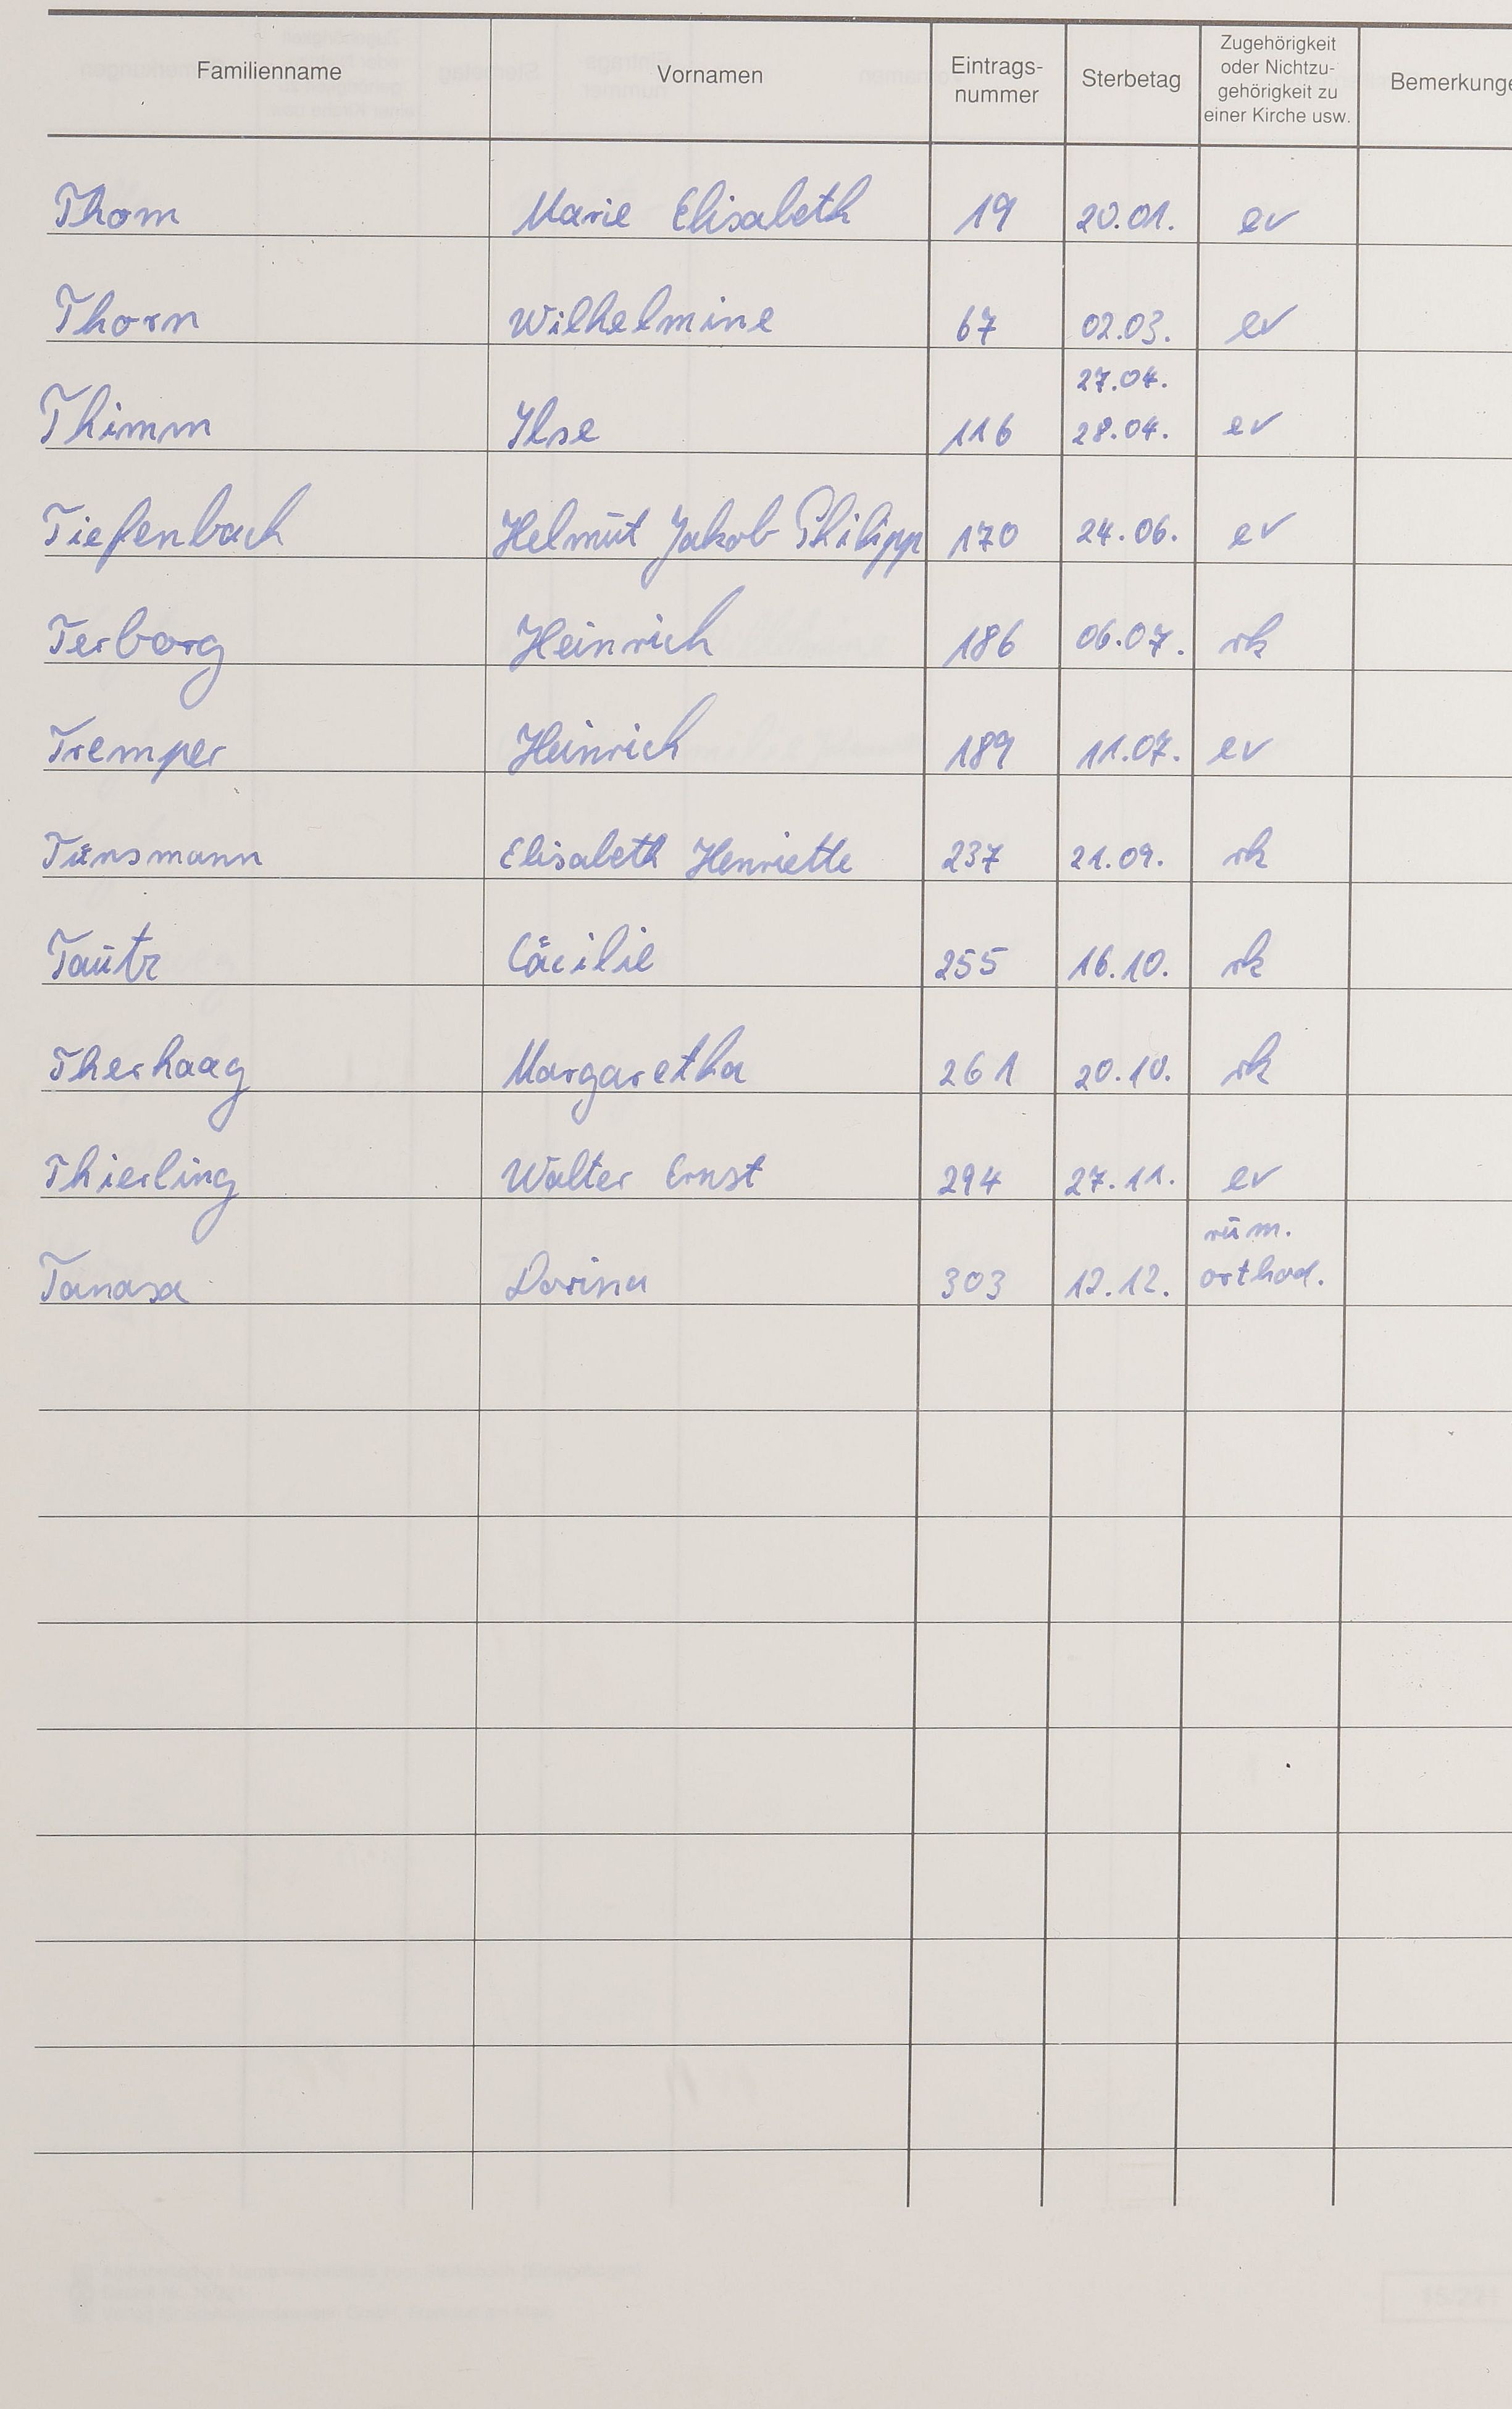 Familienname Vornamen Eintrags-nummer Sterbetag Zugehörigkeit oder Nichtzu-gehörigkeit zu einer Kirche usw. Bemerkunge
Thom Marie Elisabeth 19 20.01. ev
Thorn Wilhelmine 67 02.03. ev
27.04.
Thimm Ilse 116 28.04. ev
Tiefenbach Helmut Jakob Philipp 170 24.06. ev
Terborg Heinrich 186 06.07. rk
Tremper Heinrich 189 11.07. ev
Tünsmann Elisabeth Henriette 237 21.09. rk
Tautz Cäcilie 255 16.10. rk
Therhaag Margaretha 261 20.10. rk
Thierling Walter Ernst 294 27.11. ev
rum.
Tanasa Dorina 303 12.12. orthod.